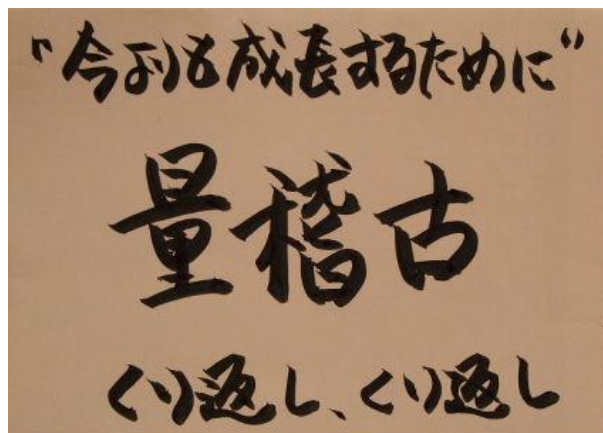 "今よりも成長するために"
量稽古
くり返し、くり返し